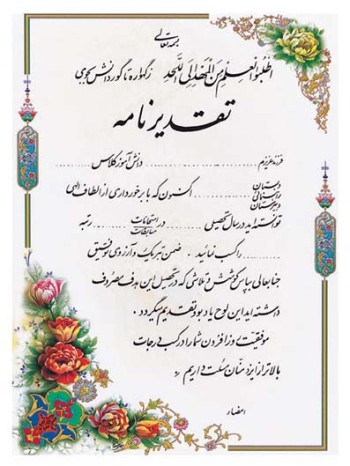 بسمه تعالی
اطلبوا العلم من المهد الی اللحد ز گهواره تا گور دانش بجوی
تقدیرنامه
فرزند عزیزم .................... دانش آموز کلاس ............
دبستان
راهنمایی .................... اکنون که با برخورداری از الطاف الهی
دبیرستان
توانسته اید در سال تحصیلی .......... در امتحانات .......... رتبه
مسابقات
.................... را کسب نمائید . ضمن تبریک و آرزوی توفیق
جنابعالی بپاس کوشش و تلاشی که در تحصیل این هدف مصروف
داشته اید این لوح یادبود تقدیم میگردد .
موفقیت روزافزون شما را در کسب درجات
بالاتر از ایزد منان مسئلت داریم
امضاء